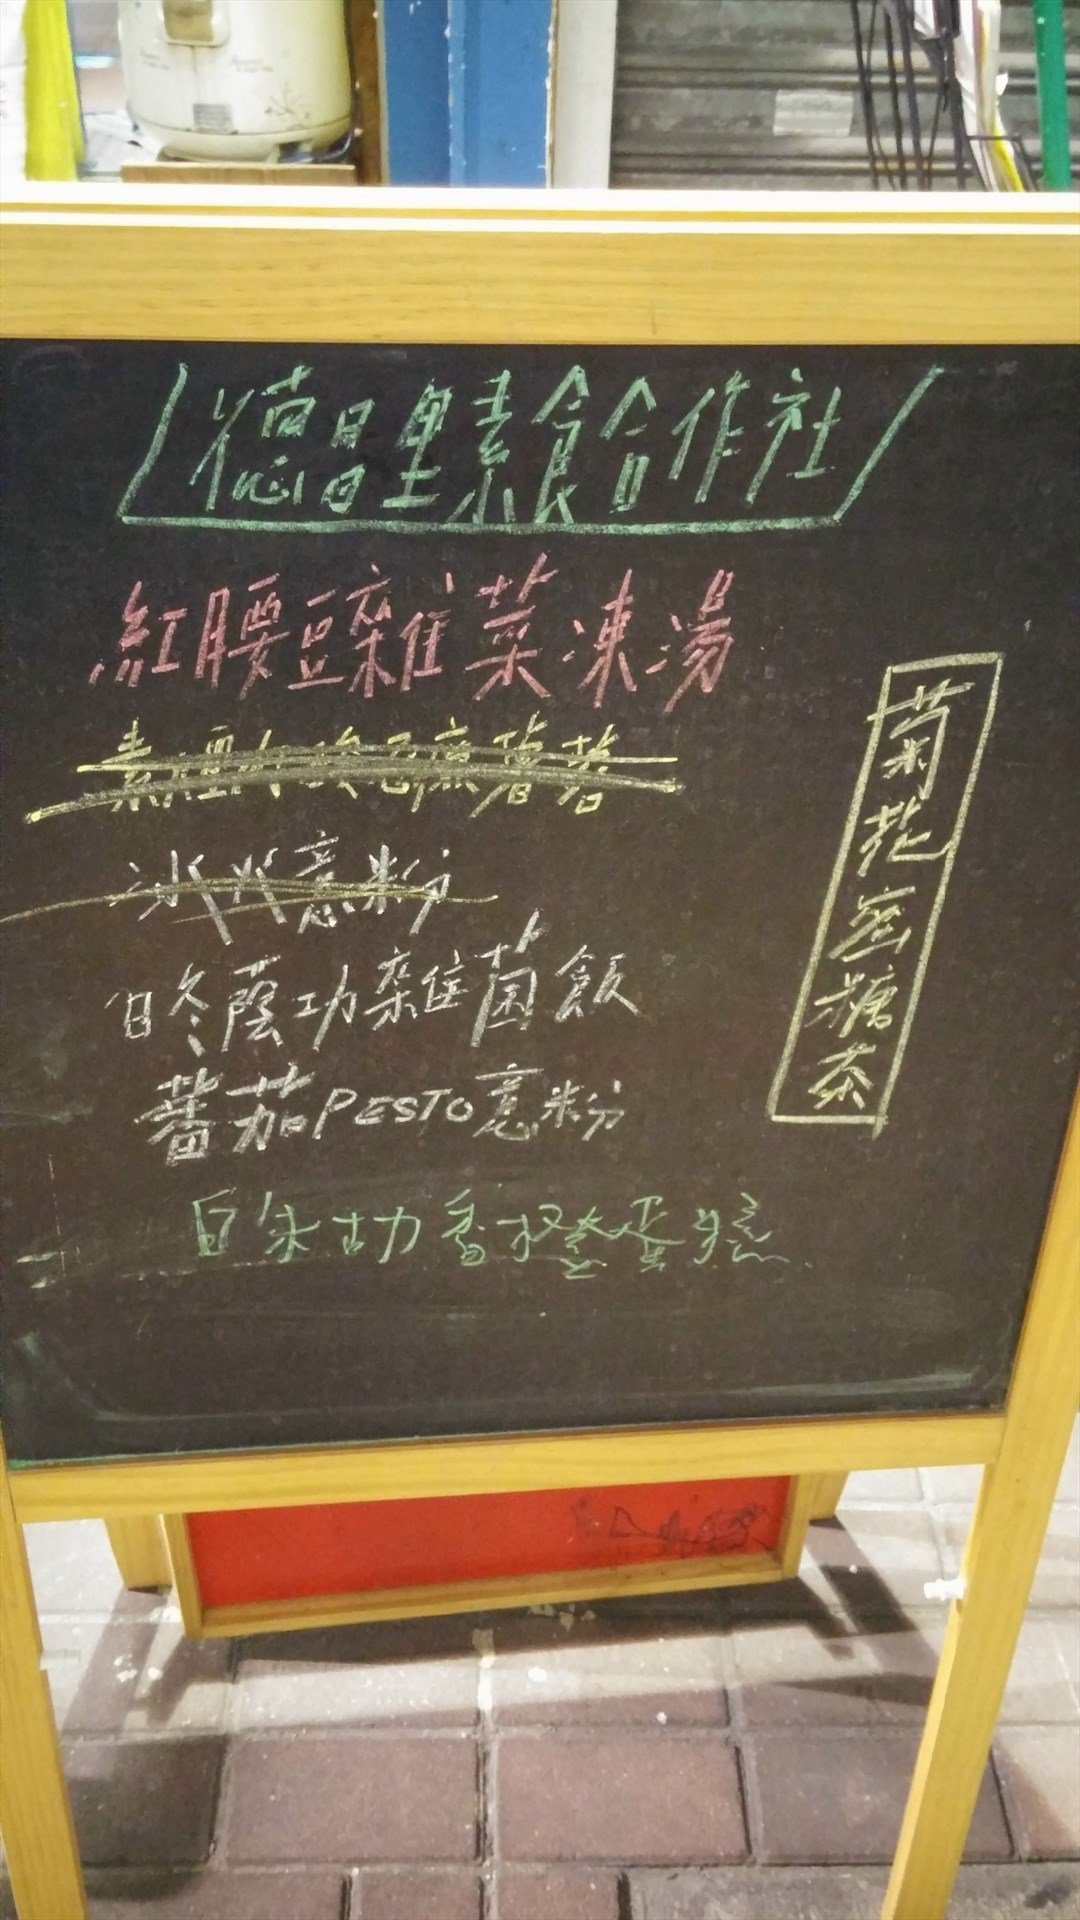 德昌里素食合作社
紅腰豆雜菜凍湯
素
冰火意粉
白冬蔭功雜菌飯
蕃茄PESTO意粉
白朱古力香橙蛋糕
菊花蜜糖茶